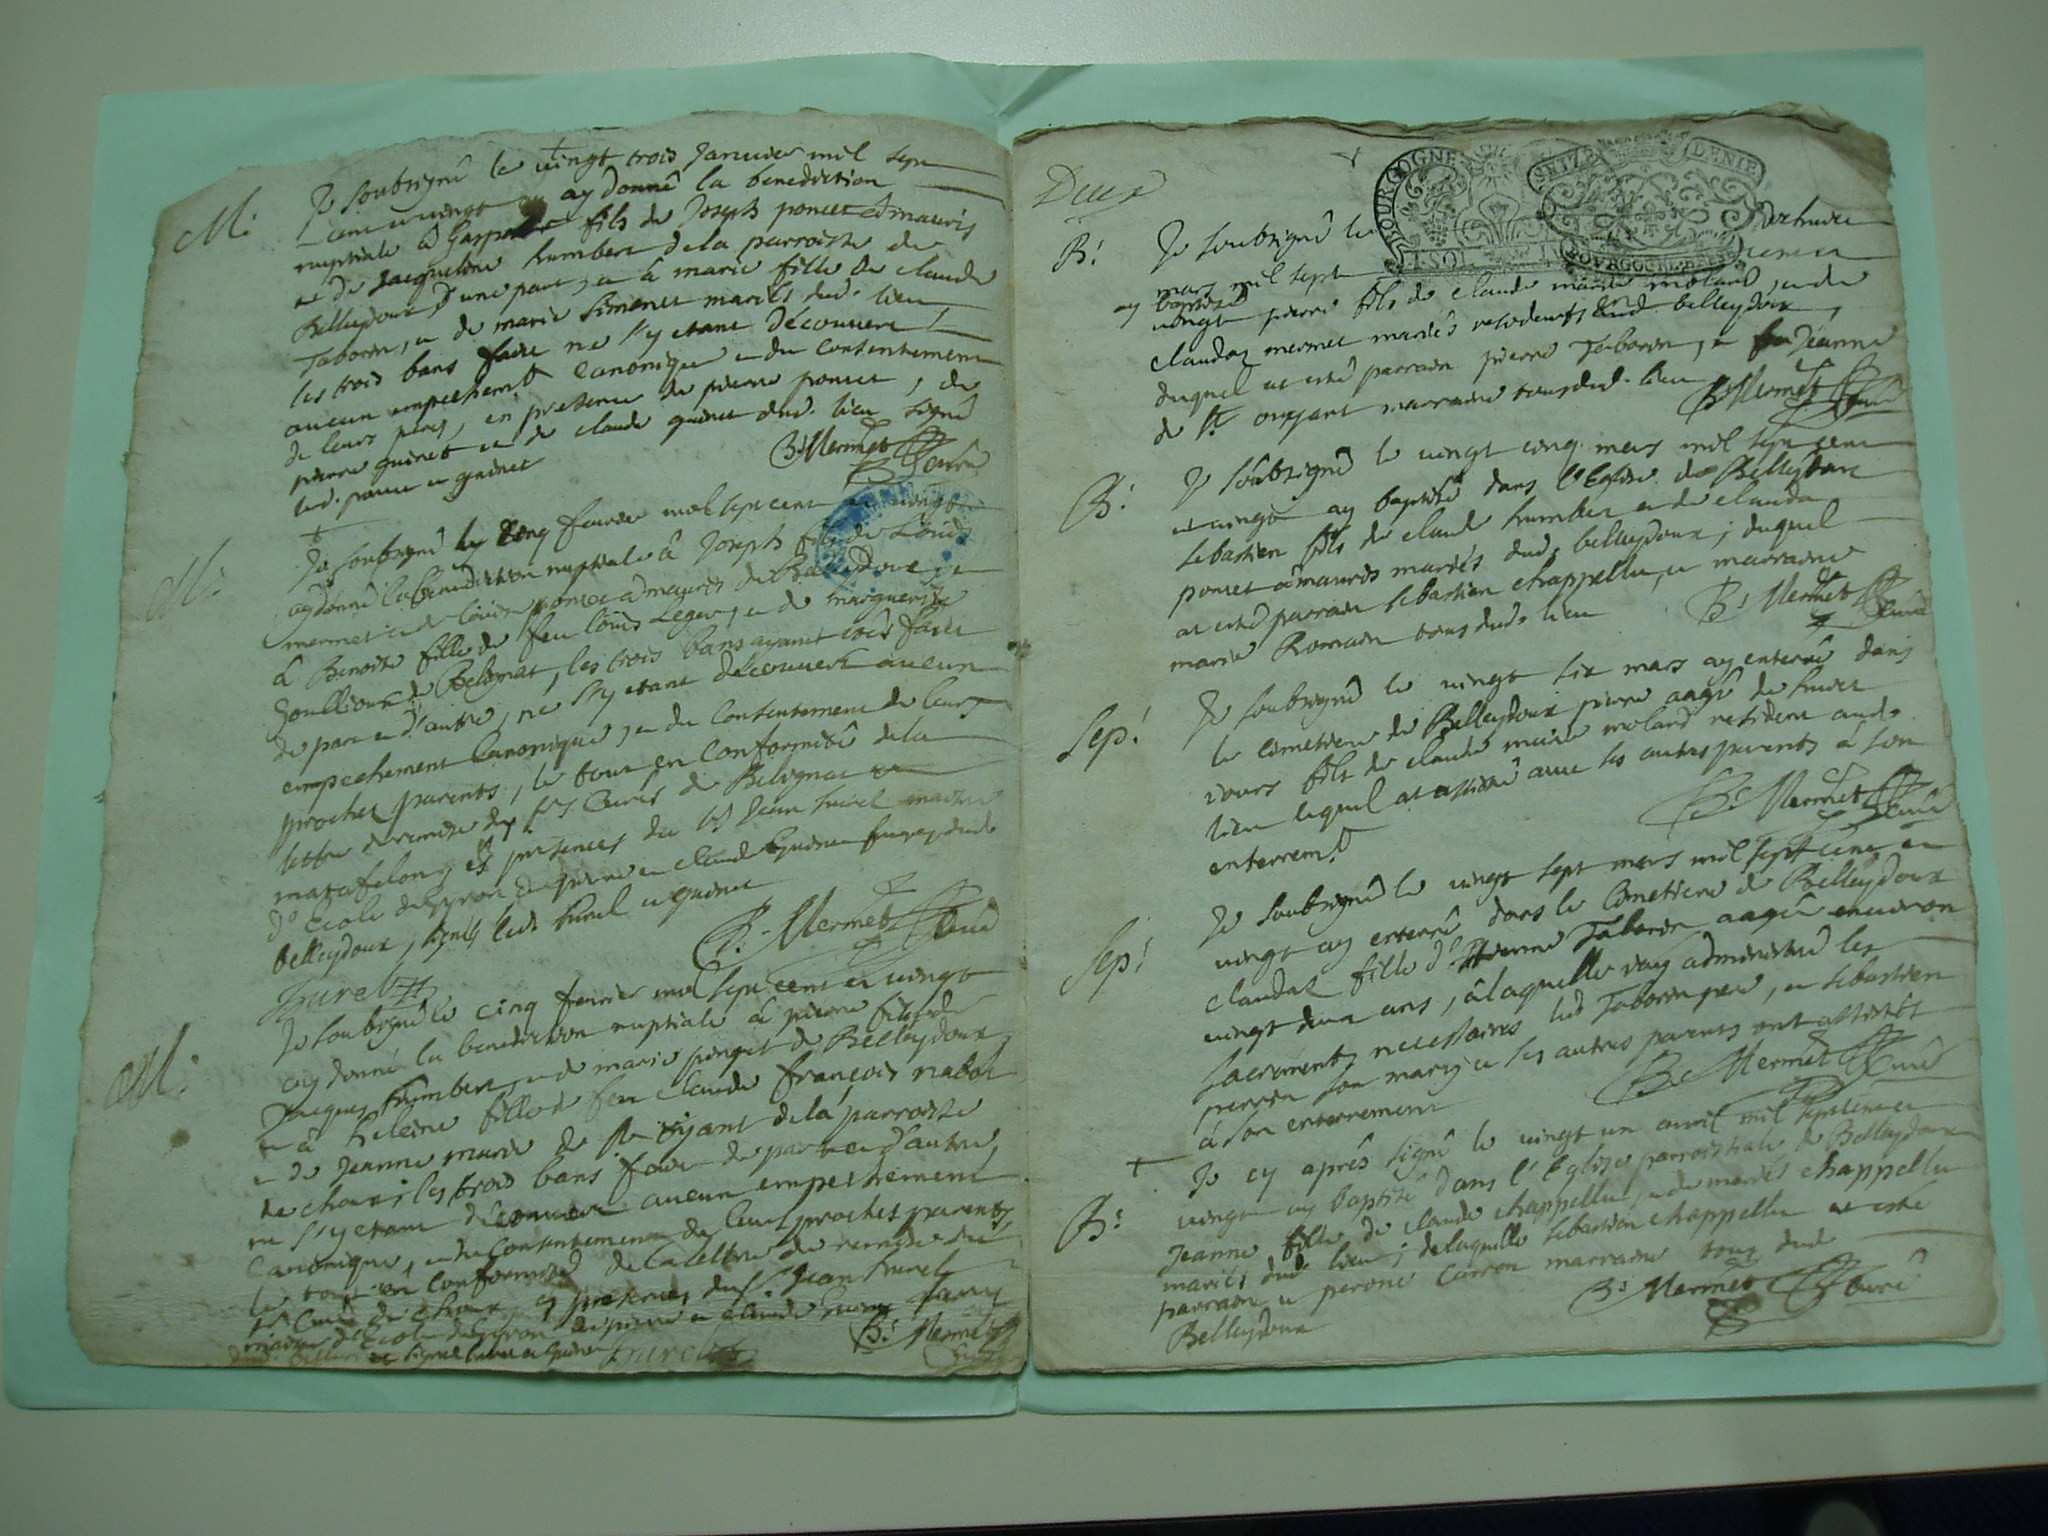 M.
Je soubsigné le vingt trois Janvier mil sept
cent et vingt ay donné la benediction
nuptiale à Gaspard fils de Joseph poncet à mauris
et de Jacqueline humbert de la parroisse de
Belleydoux d'une part, et à marie fille de claude
Taborin, et de marie Simenet mariés dud. lieu
les trois bans faits ne s'y etant découvert
aucun empechemt canonique et du consentement
de leurs peres, en presence de pierre poncet, de
pierre guinet et de claude guinet dud. lieu signé
led. poncet et guinet
B. Mermet Curé
M.
Je soubsigné le cinq fevrier mil sept cent et vingt
ay donné la benediction nuptiale à Joseph fils de Louis
mermet et de Louise poncet à mauris de Belleydoux et
à Benoite fille de feu Louis Leger, et de marguerite
Goullioux de Belignat, les trois bans ayant etés faits
de part et d'autre, ne s'y etant découvert aucun
empechement Canonique, et du Consentement de leurs
proches parents, le tout en Conformité de la
lettre de remise des srs Curés de Belignat et
matafelong es presences du sr Jean hurel maitre
d'Ecole de et de pierre et claude Guinet dud.
belleydoux, signés led. hurel et guinet
B. Mermet Curé
hurel
M.
Je soubsigné le cinq fevrier mil sept cent et vingt
ay donné la benediction nuptiale à pierre fils de
Jacques humbert, et de marie ponget de Belleydoux,
et à heleine fille de feu claude françois nabot
et de Jeanne marie de st oyant de la parroisse
de choux; les trois bans faits de part et d'autre,
ne s'y etant découvert aucun empechement
Canonique, et du Consentement de leurs proches parents
le tout en conformité de la lettre de remise du
sr Curé de choux es presences du sr Jean hurel
maitre d'Ecole de et de pierre et claude
signé hurel et guinet
B. Mermet
hurel
Deux
BOURGOGNE
SEIZE DENIE
1 SOL
BOURGOGNE BRESSE
B.
Je soubsigné le
mars mil sept
ay baptisé
vingt pierre fils de claude marie moland, et de
claudaz mermet mariés residents aud. belleydoux,
duquel at esté parrain pierre Taborin, et Jeanne
de st oyant marraine tous dud. lieu
B. Mermet Curé
B.
Je soubsigné le vingt cinq mars mil sept cent
et vingt ay baptisé dans l'Eglise de Belleydoux
sebastien fils de claude humbert et de clauda
poncet à mauris mariés dud. belleydoux; duquel
at esté parrain sebastien chappellu, et marraine
marie Romain tous dud. lieu
B. Mermet Curé
Sep.
Je soubsigné le vingt six mars ay enterré dans
le cimetiere de Belleydoux pierre aagé de
jours fils de claude marie moland resident aud.
lieu lequel at assisté avec les autres parents à son
enterremt
B. Mermet Curé
Sep.
Je soubsigné le vingt sept mars mil sept cent et
vingt ay enterré dans le cimetiere de Belleydoux
claudaz fille d'Etienne Taborin aagée environ
vingt deux ans, à laquelle j'ay administré les
sacrements necessaires led. Taborin pere, et sebastien
perrin son mary et les autres parents ont assistés
à son enterrement
B. Mermet Curé
B.
Je cy après signé le vingt un avril mil sept cent et
vingt ay baptisé dans l'Eglise parroissiale de Belleydoux
Jeanne fille de claude chappellu, et de marie chappellu
mariés dud. lieu; de laquelle sebastien chappellu at esté
parrain et perone Carron marraine tous dud.
Belleydoux
B. Mermet Curé